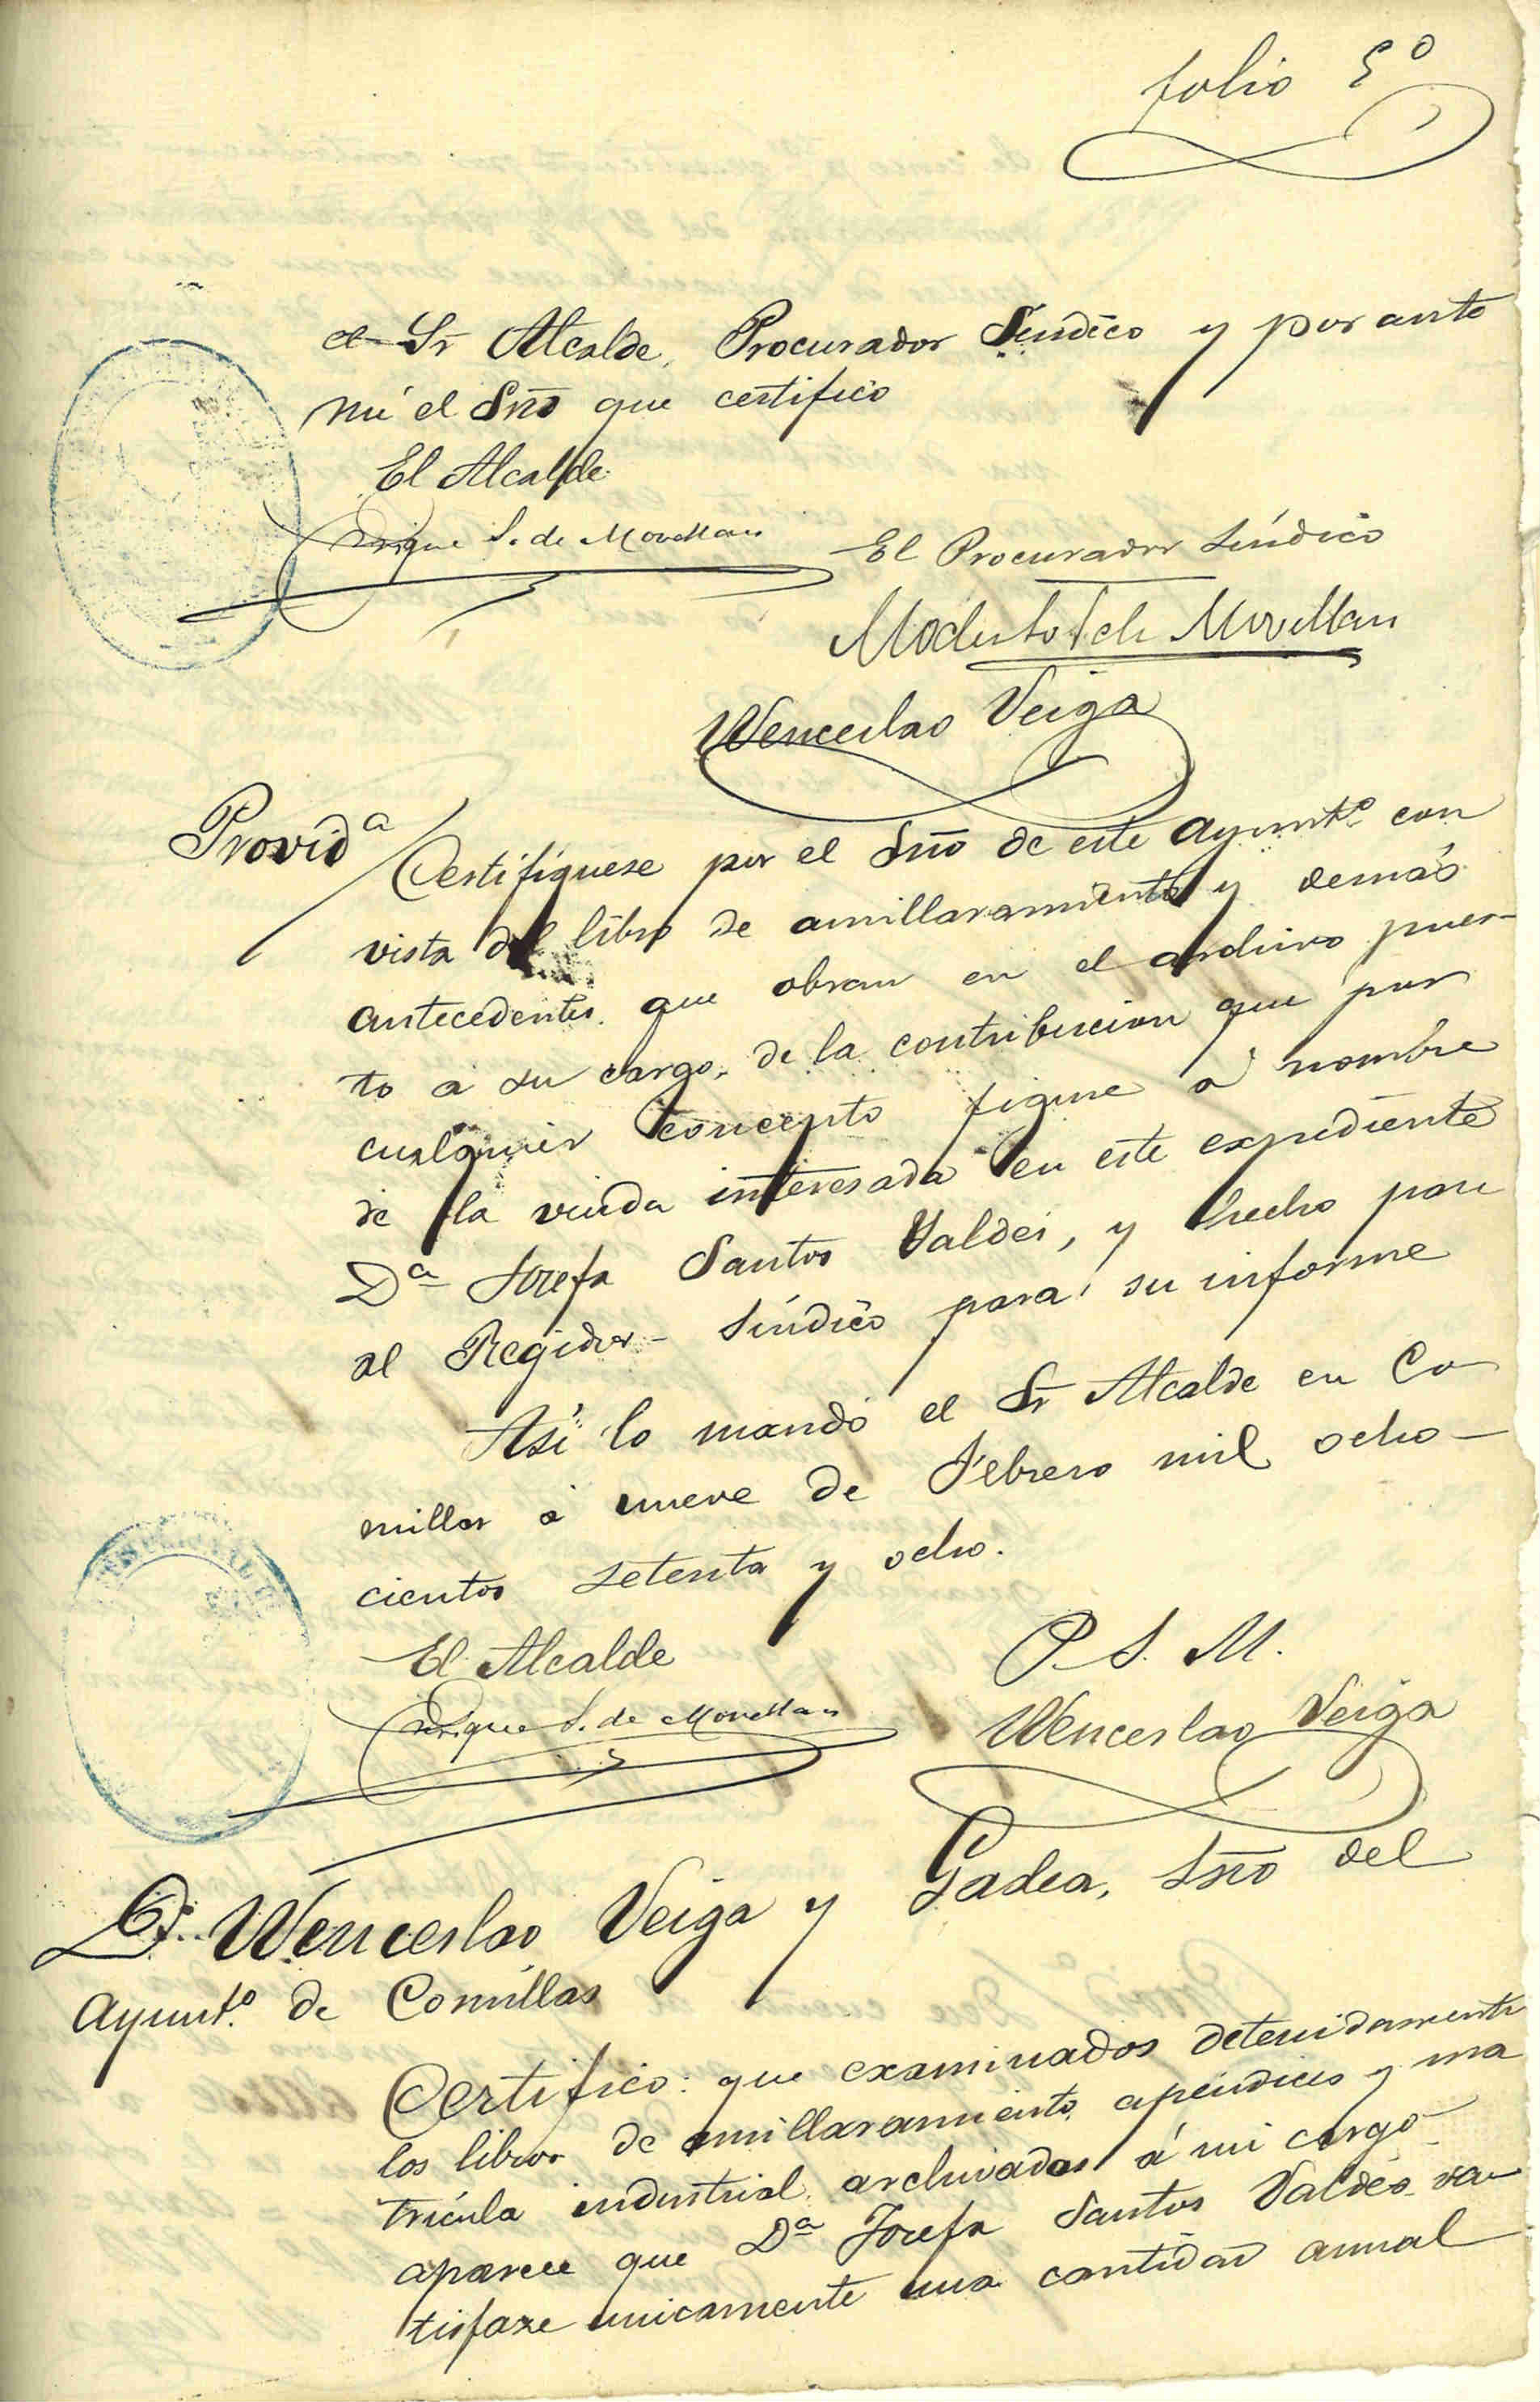 folio 5º
el Sr Alcalde, Procurador Sindico y por ante
mi el Srio que certifico
El Alcalde
Enrique S. de Movellan
El Procurador Síndico
Modesto S. de Movellan
Wenceslao Veiga
Provida
Certifíquese por el Srio de este Ayuntº con
vista del libro de amillaramiento y demás
antecedentes que obran en el archivo pues-
to á su cargo, de la contribucion que por
cualquier concepto figure á nombre
de la viuda interesada en este expediente
Dª Josefa Santos Valdes, y hecho pase
al Regidor-Síndico para su informe
Asi lo mandó el Sr Alcalde en Co-
millas á nueve de Febrero mil ocho-
cientos setenta y ocho.
El Alcalde
Enrique S. de Movellan
P. S. M.
Wenceslao Veiga
D. Wenceslao Veiga y Gadea, Srio del
Ayuntº de Comillas
Certifico: que examinados detenidamente
los libros de amillaramiento, apendices y ma
trícula industrial, archivados á mi cargo
aparece que Dª Josefa Santos Valdés sa-
tisface unicamente una cantidad anual